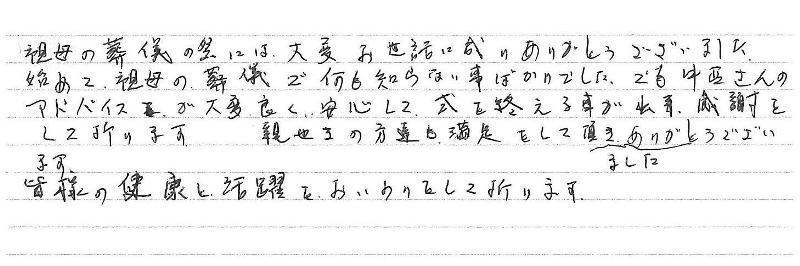 祖母の葬儀の祭には、大変お世話に成りありがとうございました。
始めて、祖母の葬儀で何も知らない事ばかりでした。でも中西さんの
アドバイスが大変良く、安心して、式を終える事が出来、感謝を
して折ります 親せきの方達も満足をして頂き、ありがとうござい
ます。 ました
皆様の健康と活躍を、おいのりをして折ります。